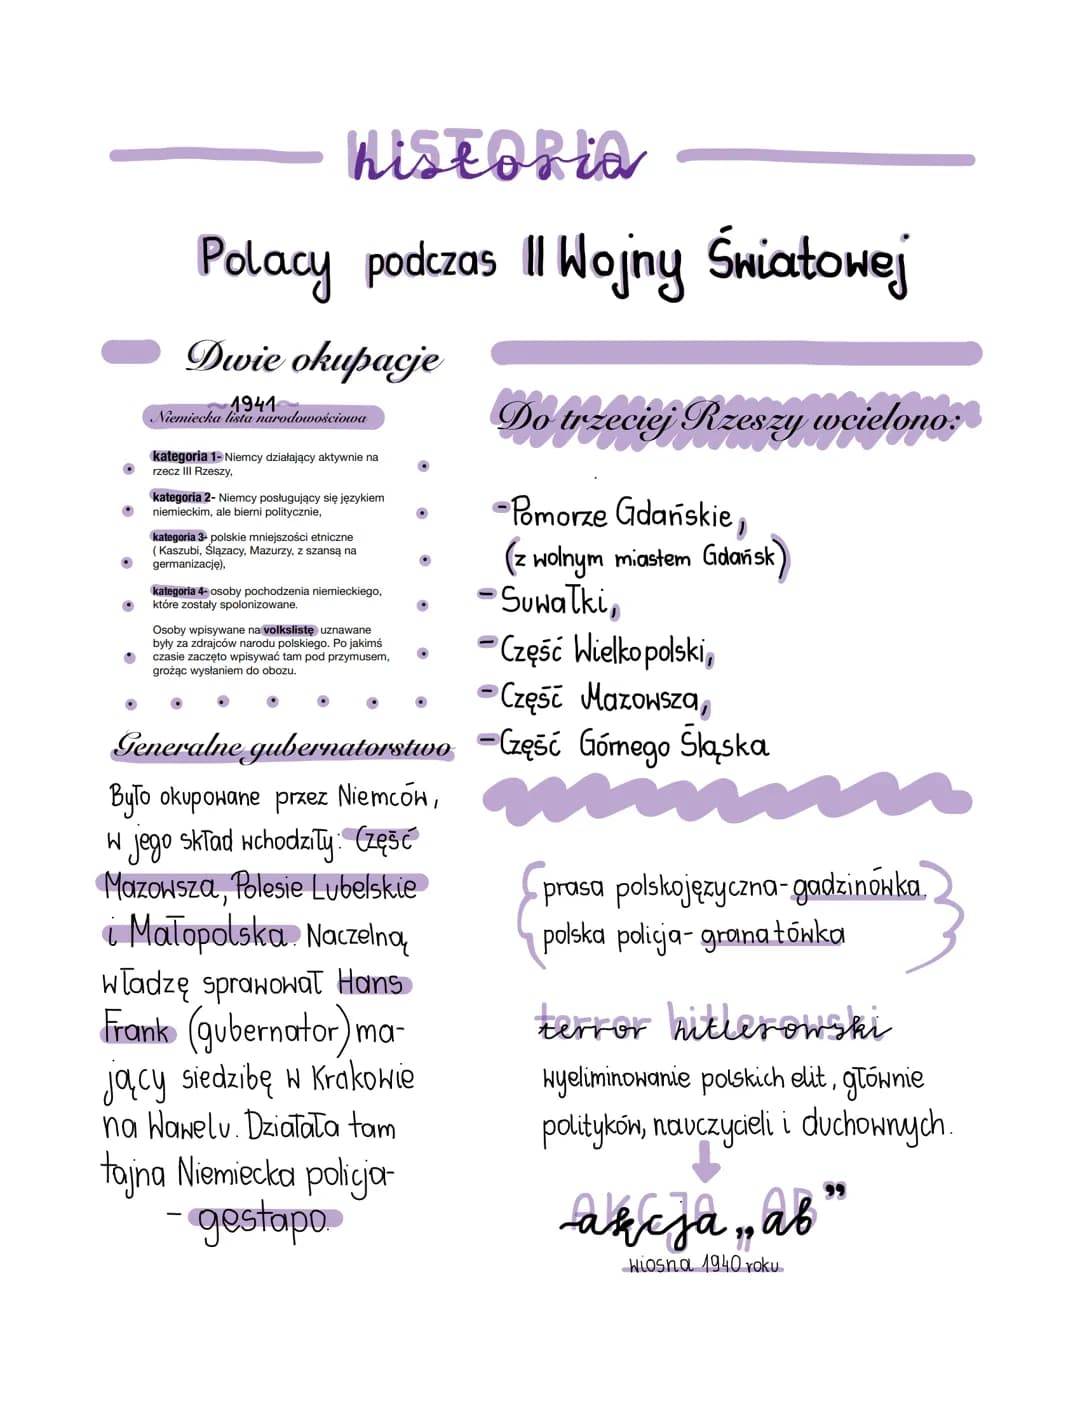 historia
Polacy podczas II Wojny Światowej
Dwie okupacje
1941
Niemiecka lista narodowościowa
kategoria 1- Niemcy działający aktywnie na
rzecz III Rzeszy,
kategoria 2- Niemcy posługujący się językiem
niemieckim, ale bierni politycznie,
kategoria 3- polskie mniejszości etniczne
( Kaszubi, Ślązacy, Mazurzy, z szansą na
germanizację),
kategoria 4- osoby pochodzenia niemieckiego,
które zostały spolonizowane.
Osoby wpisywane na volkslistę uznawane
były za zdrajców narodu polskiego. Po jakimś
czasie zaczęto wpisywać tam pod przymusem,
grożąc wysłaniem do obozu.
Generalne gubernatorstwo
Było okupowane przez Niemców,
w jego skład wchodziły: Część
Mazowsza, Polesie Lubelskie
i Małopolska. Naczelną
władzę sprawował Hans
Frank (gubernator) ma-
jący siedzibę w Krakowie
na Wawelu. Działała tam
tajna Niemiecka policja-
- gestapo.
Do trzeciej Rzeszy wcielono:
-Pomorze Gdańskie,
(z wolnym miastem Gdańsk)
-Suwałki,
-Część Wielkopolski,
-Część Mazowsza,
-Część Górnego Śląska
prasa polskojęzyczna- gadzinówka.
polska policja- granatówka
terror hitlerowski
wyeliminowanie polskich elit, głównie
polityków, nauczycieli i duchownych.
akcja „ab”
wiosna 1940 roku.